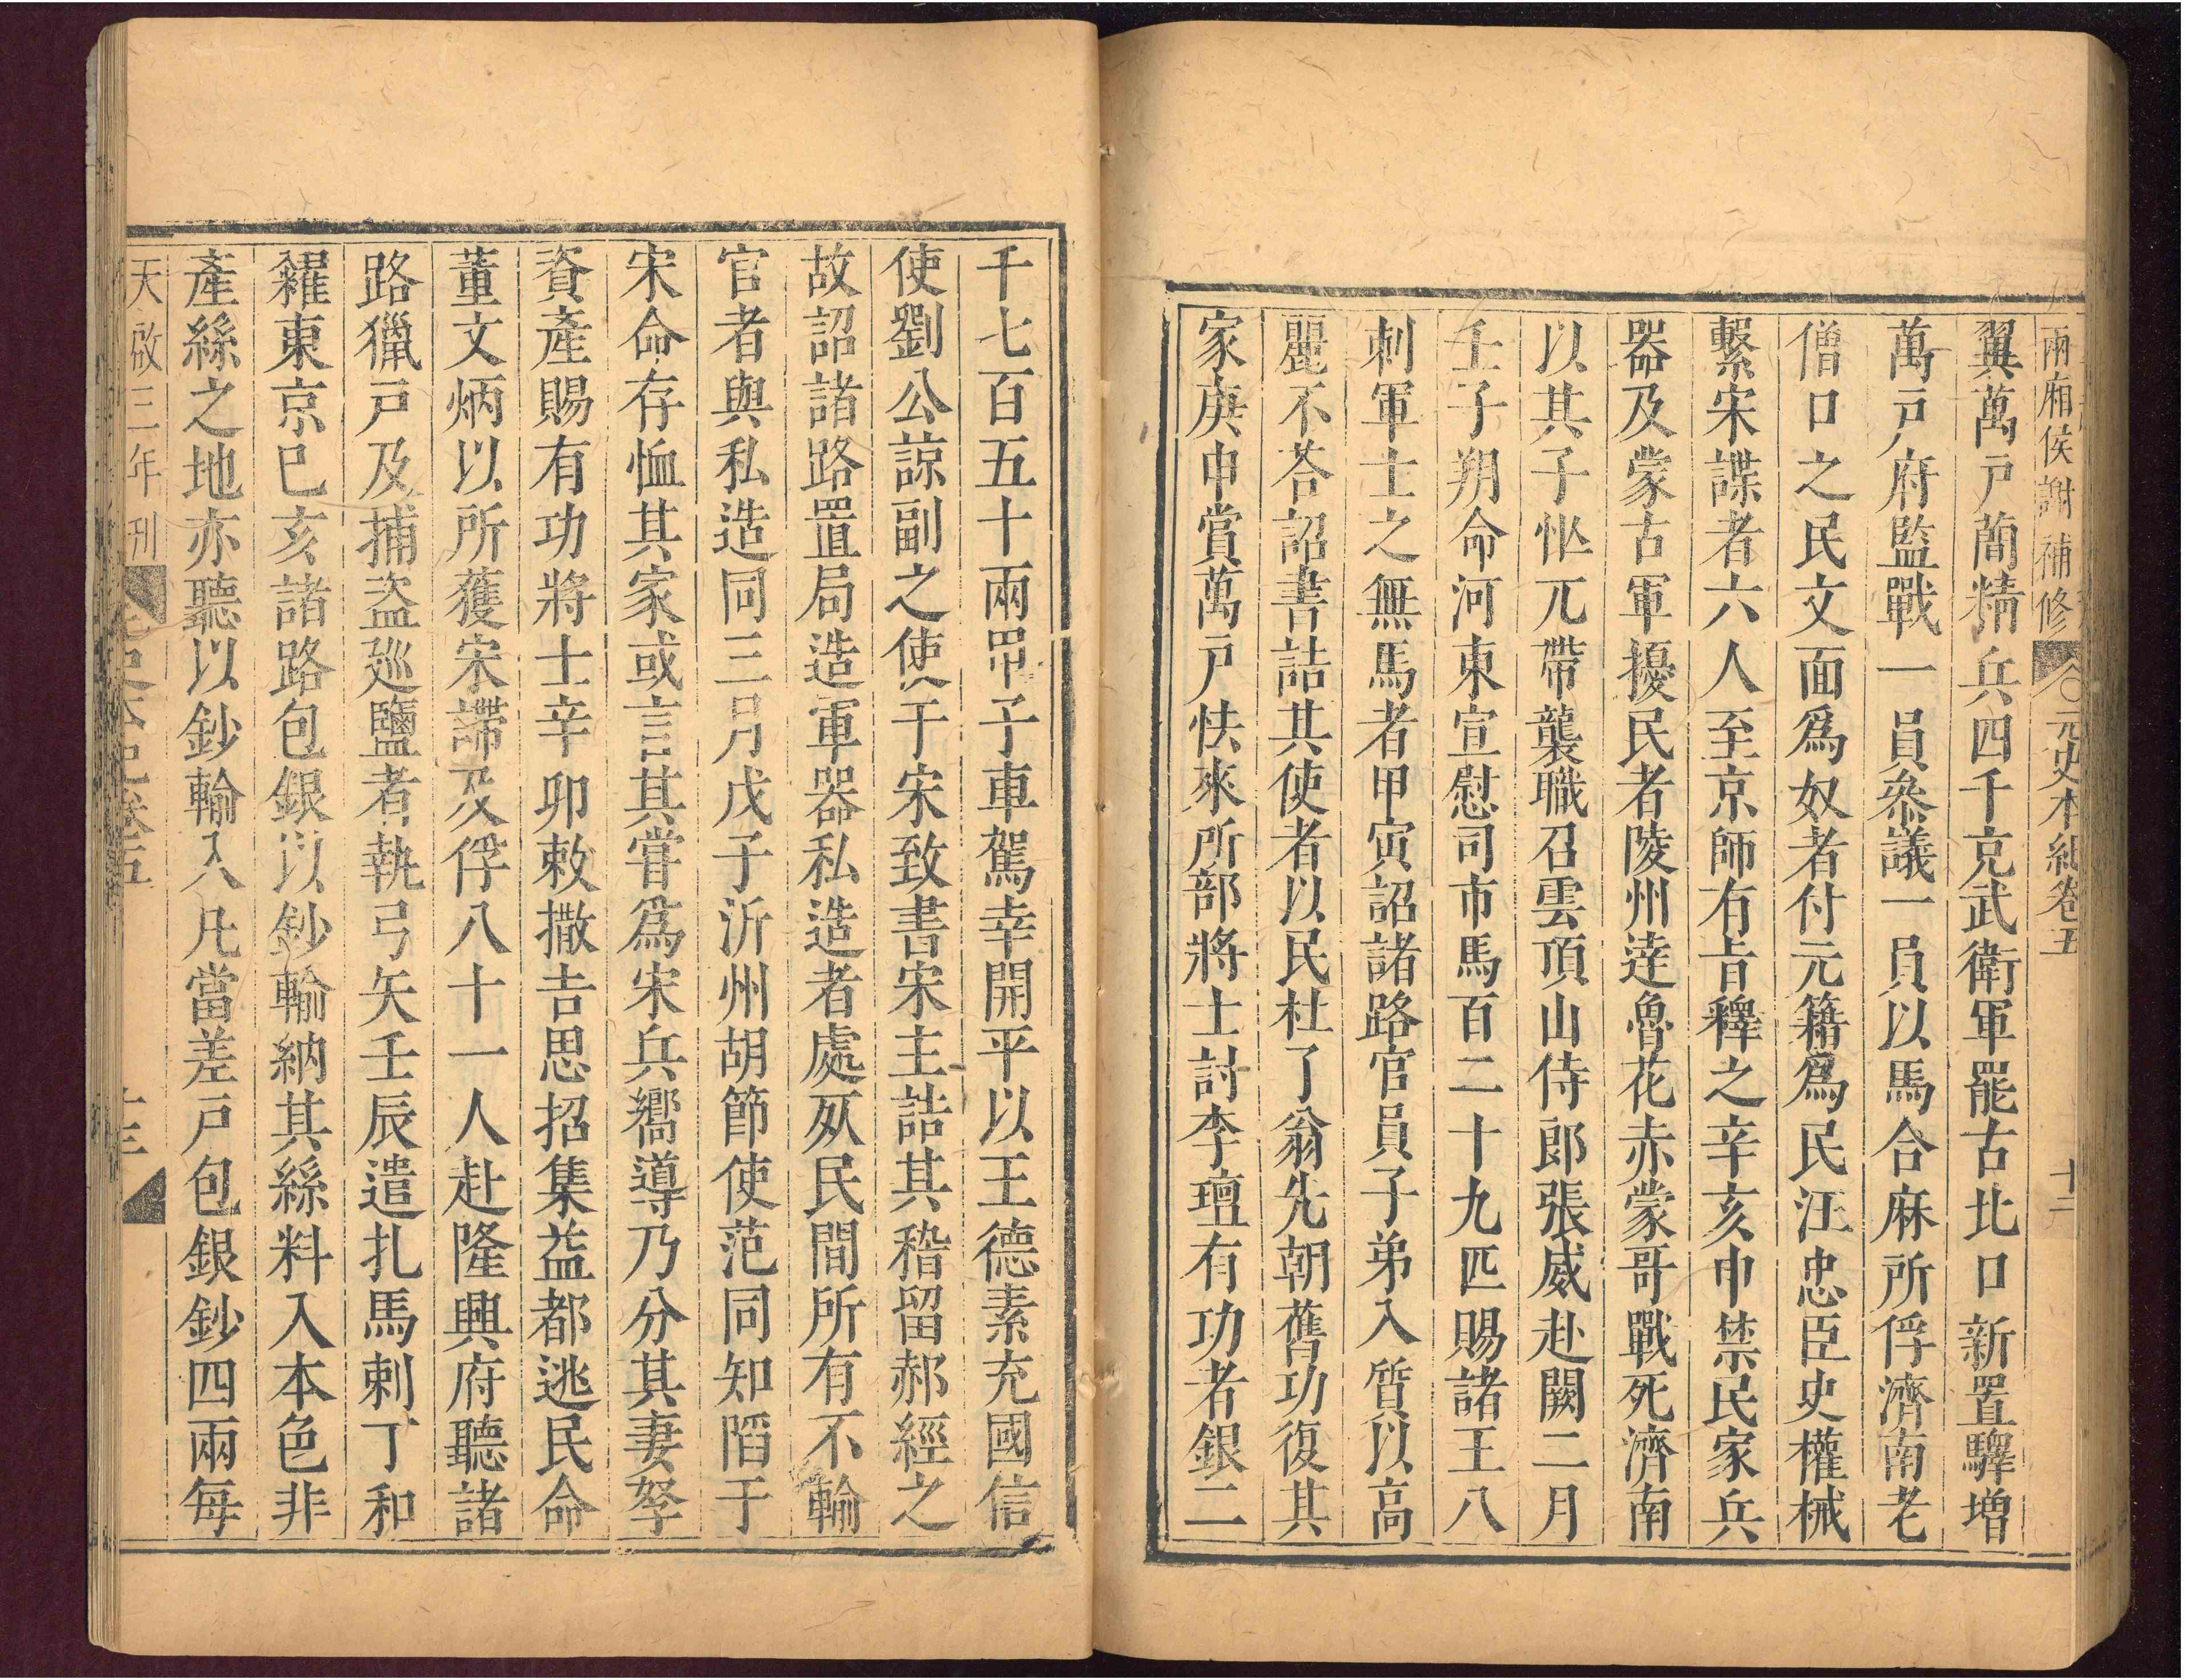 兩廂侯謝補修 元史本紀卷五 十二
翼萬戸簡精兵四千充武衛軍罷古北口新置驛增
萬戸府監戰一員叅議一員以馬合麻所俘濟南老
僧口之民文面爲奴者付元籍爲民汪忠臣史權械
繫宋諜者六人至京師有旨釋之辛亥申禁民家兵
器及蒙古軍擾民者陵州達魯花赤蒙哥戰死濟南
以其子忙兀帶襲職召雲頂山侍郎張威赴闕二月
壬子朔命河東宣慰司市馬百二十九匹賜諸王八
剌軍士之無馬者甲寅詔諸路官員子弟入質以高
麗不荅詔書詰其使者以民杜了翁先朝舊功復其
家庚申賞萬戸怯來所部將士討李璮有功者銀二
千七百五十兩甲子車駕幸開平以王德素充國信
使劉公諒副之使于宋致書宋主詰其稽留郝經之
故詔諸路置局造軍器私造者處死民間所有不輸
官者與私造同三月戊子沂州胡節使范同知䧟于
宋命存恤其家或言其嘗爲宋兵嚮導乃分其妻孥
資產賜有功將士辛卯敕撒吉思招集益都逃民命
董文炳以所獲宋諜及俘八十一人赴隆興府聽諸
路獵戸及捕盗廵鹽者執弓矢壬辰遣扎馬剌丁和
糴東京巳亥諸路包銀以鈔輸納其絲料入本色非
產絲之地亦聽以鈔輸入凡當差戸包銀鈔四兩每
天啟三年刊 元史本紀卷五 十三